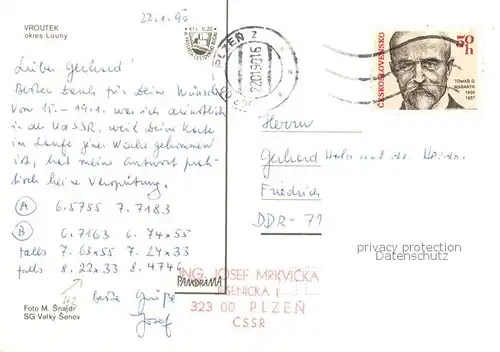 VROUTEK
okres Louny
22.1.90
Lieber Gerhard!
Besten Dank für Deine Wünsche
Vom 15. - 19.1. war ich dienstlich
in der UdSSR, weil Deine Karte
im Laufe jener Woche gekommen
ist, hat meine Antwort prak-
tisch keine Verspätung.
A 6.5755 7.7183
B 6.7163 6.74x55
falls 7.63x55 7.24x33
falls 8.22x33 8.4746
Beste Grüße
Josef
Foto M. Šnajdr
SG Velký Šenov
PANORAMA
PLZEŇ
22.01.90 16
ČESKOSLOVENSKO
50 h
TOMÁŠ G.
MASARYK
1937
Herrn
Gerhard
Friedrich
DDR - 71
privacy protection
Datenschutz
ING. JOSEF MRKVIČKA
JESENICKÁ 1
323 00 PLZEŇ
ČSSR